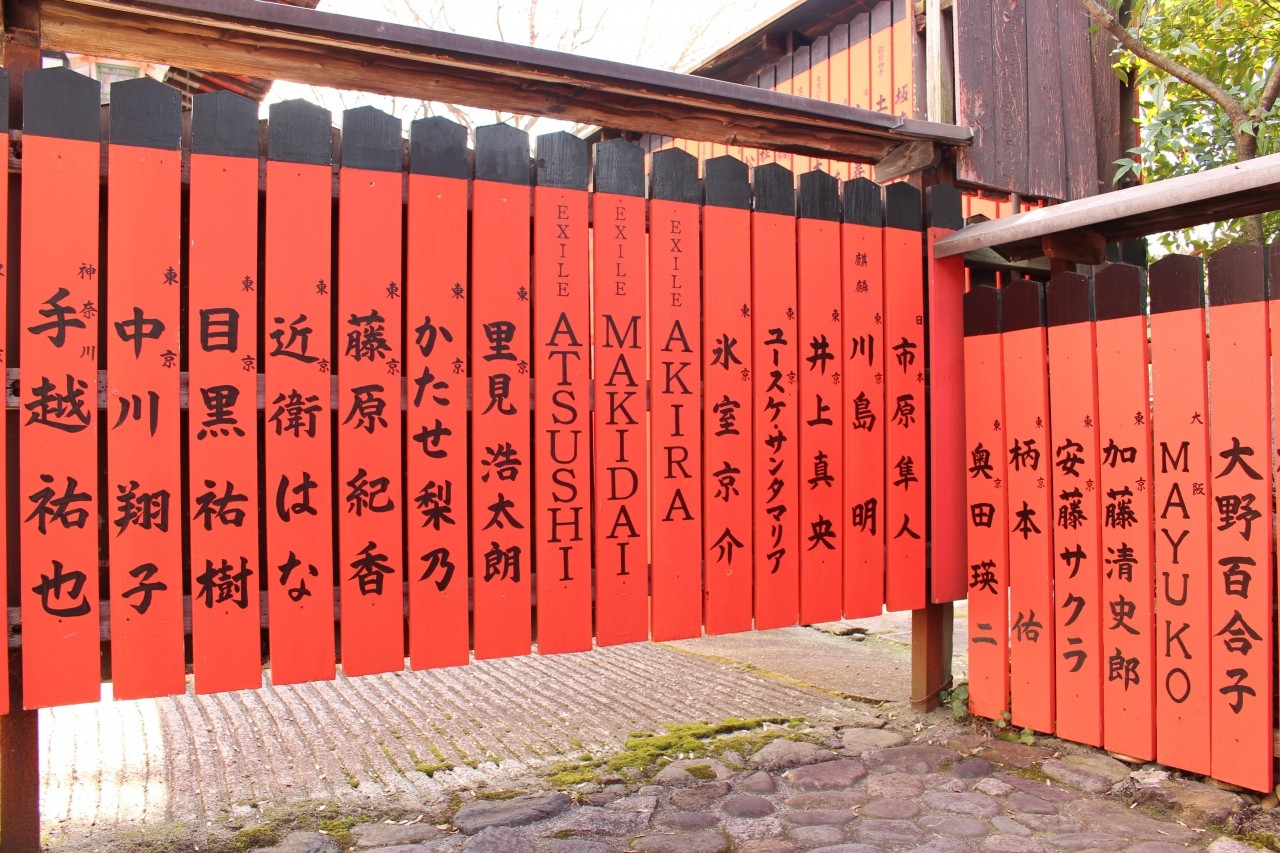 神奈川 手越祐也
東京 中川翔子
東京 目黒祐樹
東京 近衛はな
東京 藤原紀香
東京 かたせ梨乃
東京 里見浩太朗
EXILE ATSUSHI
EXILE MAKIDAI
EXILE AKIRA
東京 氷室京介
東京 ユースケ・サンタマリア
東京 井上真央
麒麟 東京 川島明
日本 市原隼人
東京 奥田瑛二
東京 柄本佑
東京 安藤サクラ
東京 加藤清史郎
大阪 MAYUKO
大野百合子